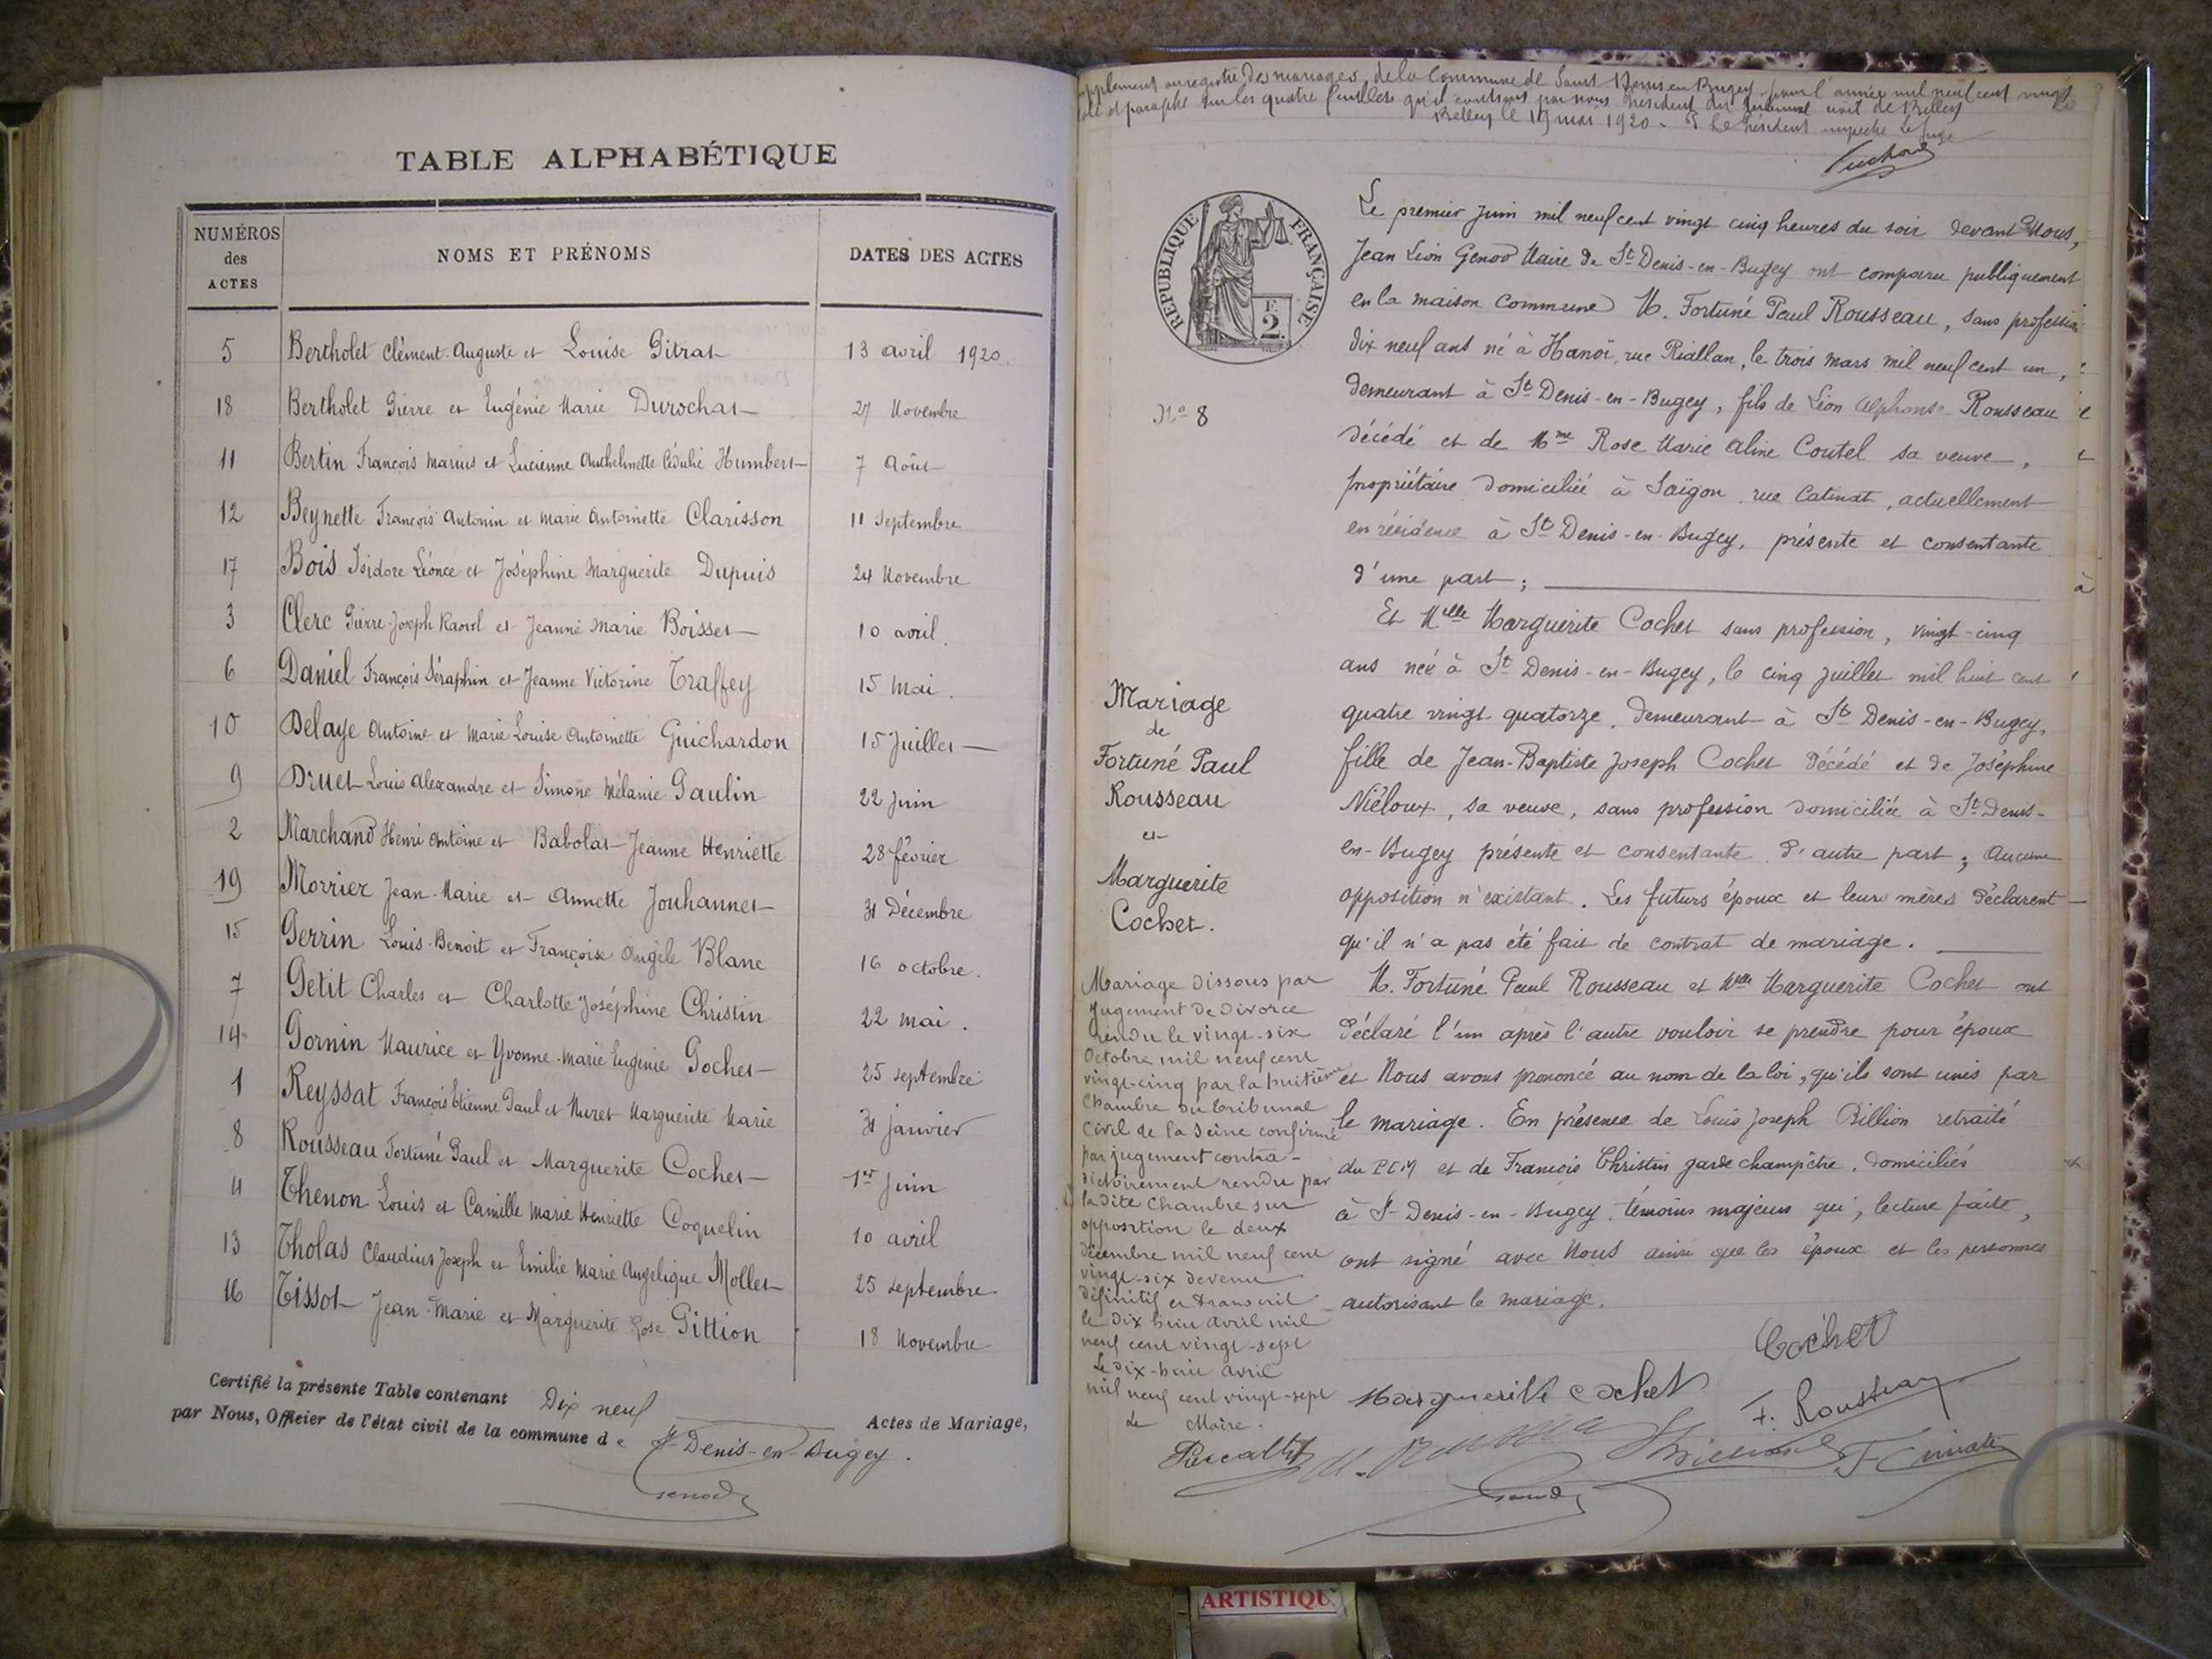 TABLE ALPHABÉTIQUE
NUMÉROS des ACTES
NOMS ET PRÉNOMS
DATES DES ACTES
5 Bertholet Clément Auguste et Louise Pitrat 13 avril 1920.
18 Bertholet Pierre et Eugénie Marie Durochat 27 Novembre
11 Bertin François Marius et Lucienne Anthelmette Humbert 7 Août
12 Beynette François Antonin et Marie Antoinette Clarisson 11 Septembre
17 Bois Isidore Léonce et Joséphine Marguerite Dupuis 24 Novembre
3 Clerc Pierre Joseph Raoul et Jeanne Marie Boisset 10 avril.
6 Daniel François Séraphin et Jeanne Victorine Traffey 15 Mai.
10 Delaye Antoine et Marie Louise Antoinette Guichardon 15 Juillet
9 Druet Louis Alexandre et Simone Mélanie Paulin 22 Juin
2 Marchand Henri Antoine et Babolat Jeanne Henriette 28 février
19 Morrier Jean-Marie et Annette Jouhannet 31 Décembre
15 Perrin Louis-Benoit et Françoise Angèle Blanc 16 octobre.
7 Petit Charles et Charlotte Joséphine Christin 22 mai.
14 Pornin Maurice et Yvonne Marie Eugénie Pochet 25 septembre
1 Reyssat François Etienne Paul et Muret Marguerite Marie 31 janvier
8 Rousseau Fortuné Paul et Marguerite Cochet 1er Juin
4 Thenon Louis et Camille Marie Henriette Coquelin 10 avril
13 Tholas Claudius Joseph et Emilie Marie Angelique Mollet 25 septembre
16 Tissot Jean-Marie et Marguerite Rose Pittion 18 Novembre
Certifié la présente Table contenant Dix neuf Actes de Mariage,
par Nous, Officier de l'état civil de la commune de St-Denis-en-Bugey.
Genod
supplement au registre des mariages de la Commune de Saint Denis en Bugey pour l'année mil neuf cent vingt
coté et paraphé sur les quatre feuillets qu'il contient par nous Président du Tribunal civil de Belley
Belley le 19 mai 1920 - Le Président empeché Le Juge
RÉPUBLIQUE FRANÇAISE
F.
2.
No 8
Le premier Juin mil neuf cent vingt cinq heures du soir devant Nous,
Jean Léon Genod Maire de St-Denis-en-Bugey ont comparu publiquement
en la maison commune M. Fortuné Paul Rousseau, sans profession
dix neuf ans né à Hanoï, rue Riallan, le trois mars mil neuf cent un,
demeurant à St Denis-en-Bugey, fils de Léon Alphonse Rousseau
décédé et de Mme Rose Marie Aline Coutel sa veuve,
propriétaire domiciliée à Saïgon, rue Catinat, actuellement
en résidence à St Denis-en-Bugey, présente et consentante
d'une part;
Et Melle Marguerite Cochet sans profession, vingt-cinq
ans née à St Denis-en-Bugey, le cinq juillet mil huit cent
quatre vingt quatorze. demeurant à St Denis-en-Bugey,
fille de Jean-Baptiste Joseph Cochet décédé et de Joséphine
Niéloux, sa veuve, sans profession domiciliée à St Denis-
en-Bugey présente et consentante d'autre part; Aucune
opposition n'existant. Les futurs époux et leurs mères déclarent
qu'il n'a pas été fait de contrat de mariage.
M. Fortuné Paul Rousseau et Melle Marguerite Cochet ont
déclaré l'un après l'autre vouloir se prendre pour époux
et Nous avons prononcé au nom de la loi, qu'ils sont unis par
le mariage. En présence de Louis Joseph Billion retraité
du PLM et de François Christin garde champêtre, domiciliés
à St-Denis-en-Bugey, témoins majeurs qui, lecture faite,
ont signé avec Nous ainsi que les époux et les personnes
autorisant le mariage.
Mariage
de
Fortuné Paul
Rousseau
et
Marguerite
Cochet.
Mariage dissous par
Jugement de divorce
rendu le vingt-six
Octobre mil neuf cent
vingt-cinq par la huitième
Chambre du tribunal
civil de la Seine confirmé
par jugement contra-
dictoirement rendu par
la dite Chambre sur
opposition le deux
décembre mil neuf cent
vingt-six devenu
définitif et transcrit
le dix huit avril mil
neuf cent vingt-sept
Le dix-huit avril
mil neuf cent vingt-sept
Le Maire.
Cochet
Marguerite Cochet
F. Rousseau
Genod
ARTISTIQU